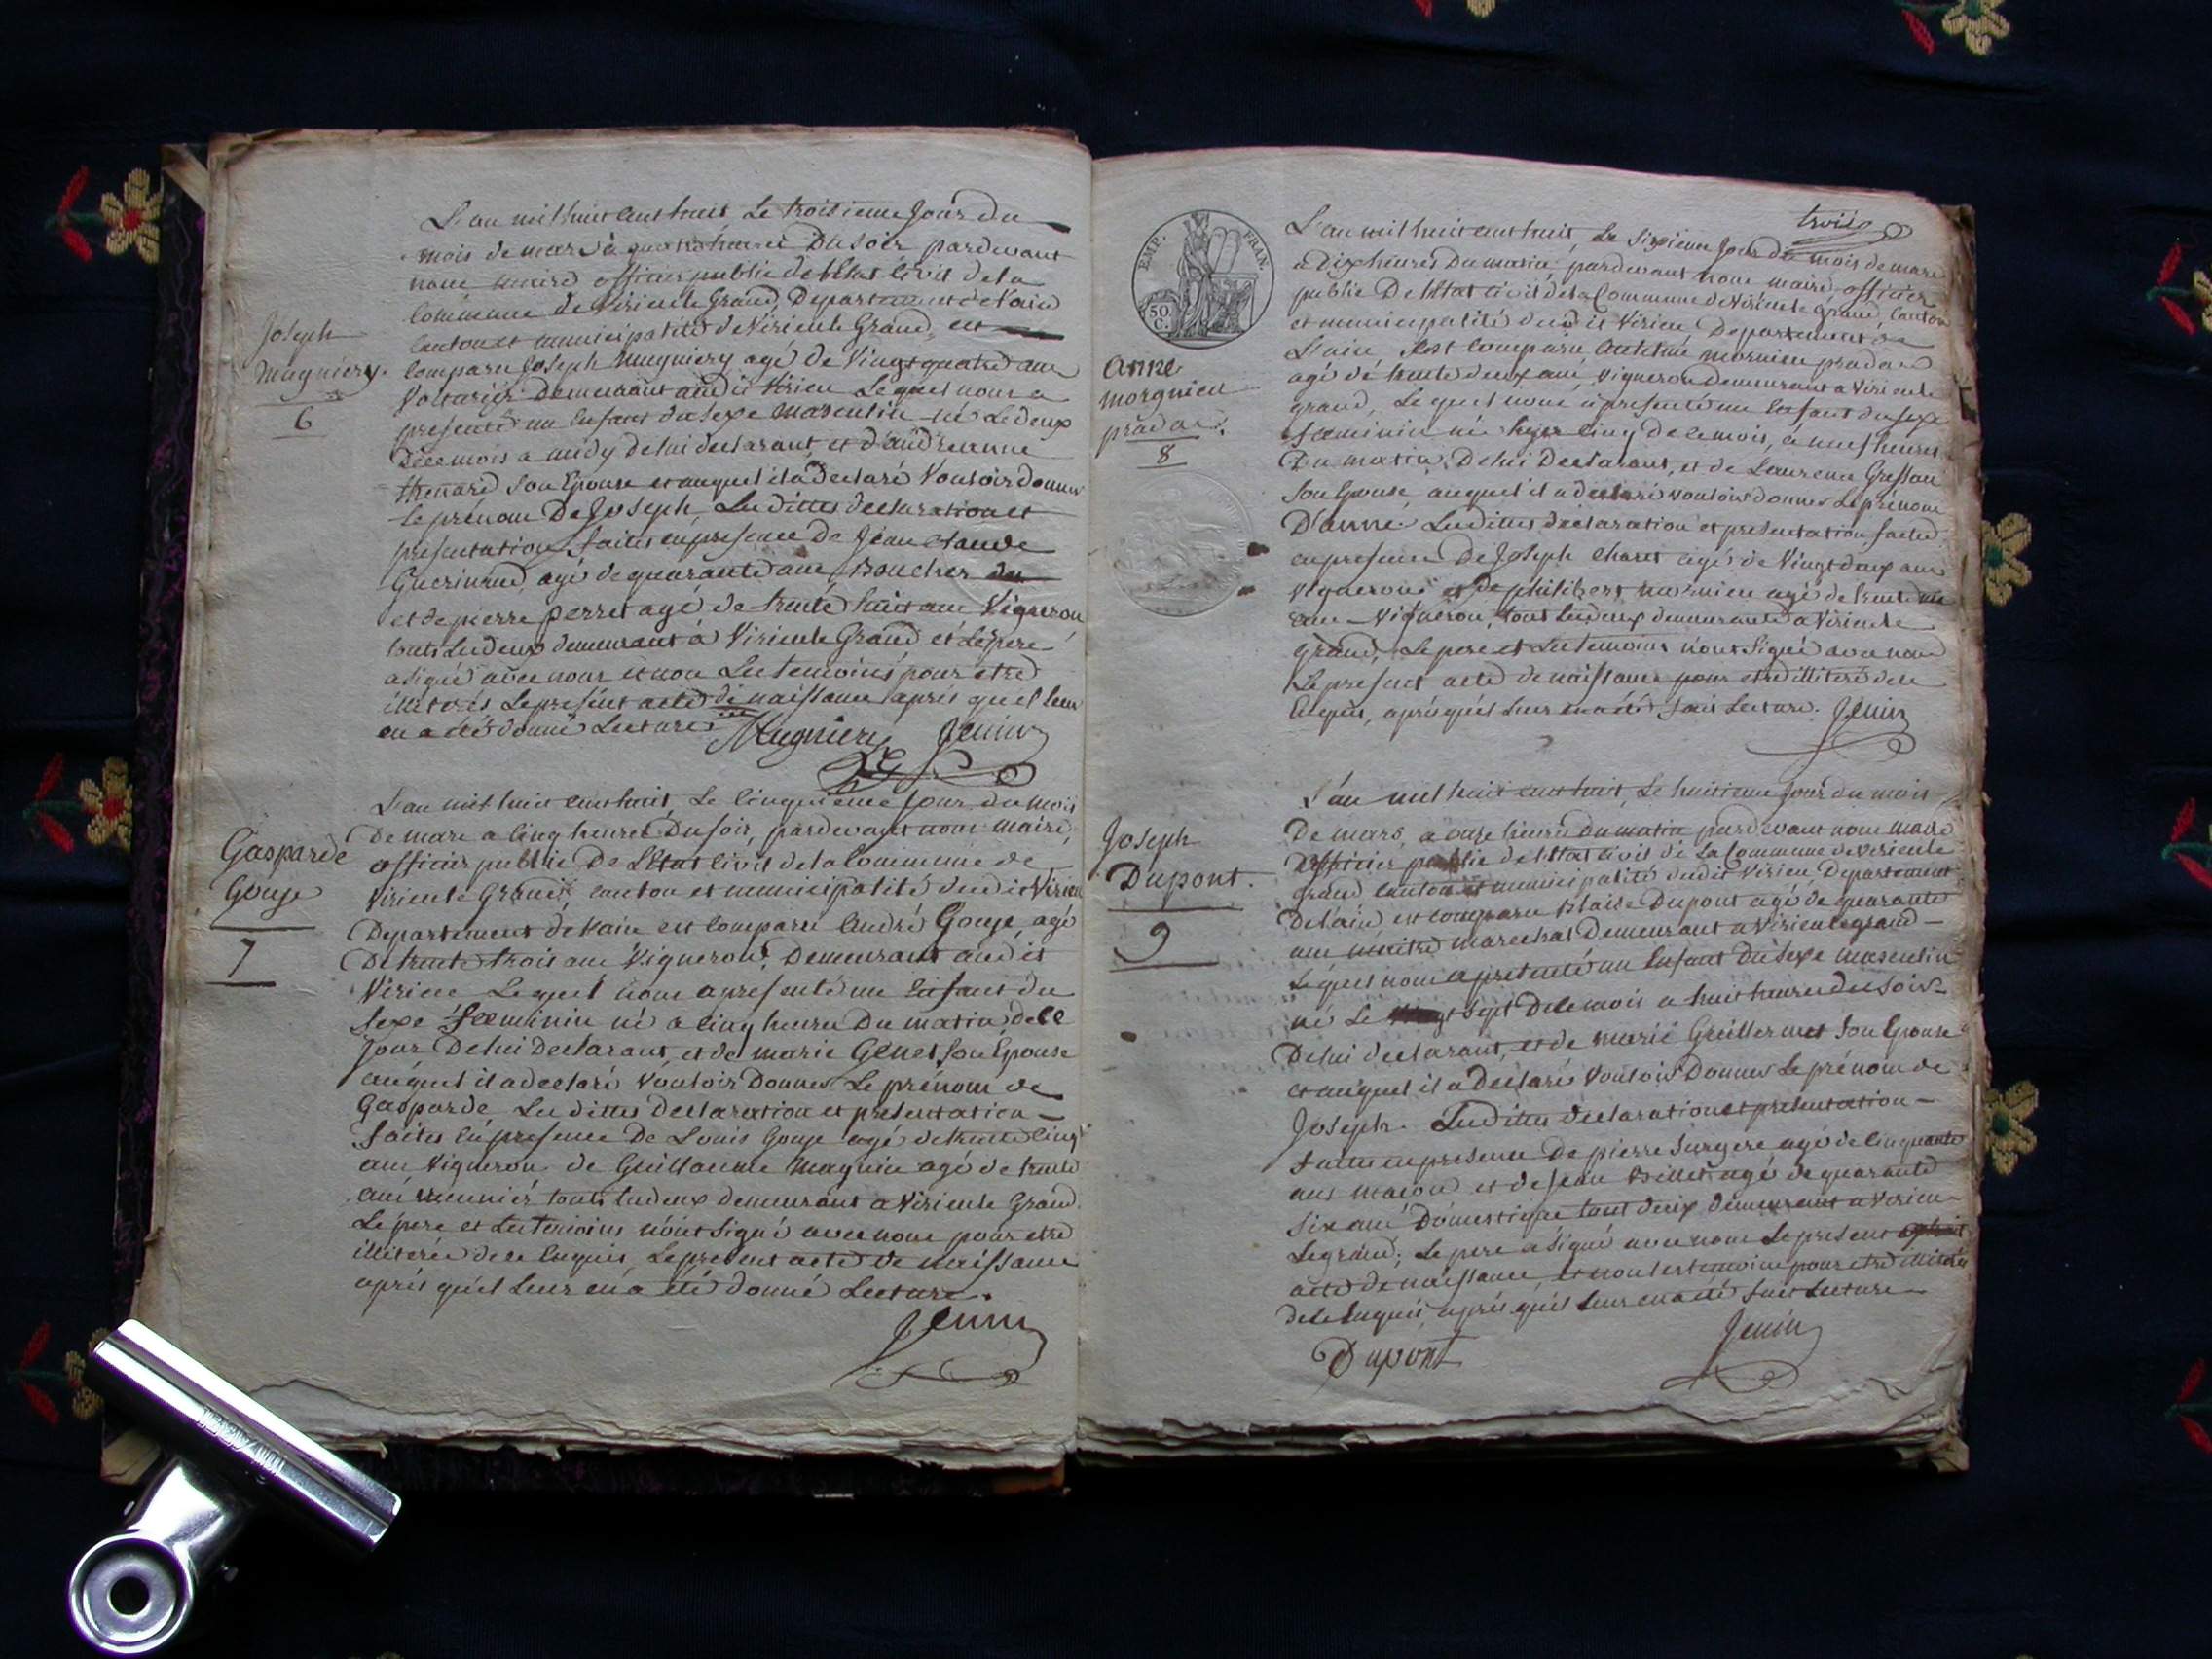 L'an mil huit cent huit le troisieme jour du
mois de mars à quatre heures du soir pardevant
nous maire officier public de l'Etat Civil de la
Commune de Virieu le Grand, Departement de l'ain
Canton et municipalité de Virieu le Grand, est
Joseph
Mugniery.
6
comparu Joseph Mugniery agé de Vingt quatre ans
demeurant audit Virieu Lequel nous a
présenté un Enfant du sexe masculin né Le deux
de ce mois a midy de lui declarant, et d'andréanne
thenard son Epouse et auquel il a declaré Vouloir donner
le prénom De Joseph, Les dittes declaration et
presentation faites en presence de Jean Claude
agé de quarante ans Boucher
et de pierre perret agé de trente huit ans Vigneron
touts les deux demeurant à Virieu le Grand, et Le pere
a signé avec nous et non Les temoins pour etre
illiterés Le présent acte de naissance après qu'il leur
en a été donné Lecture
Mugniery Jenin
L'an mil huit cent huit, Le Cinquieme jour du mois
Gasparde
Gouje
7
De mars a Cinq heures Du soir, pardevant nous maire,
officier public De L'Etat Civil de la Commune de
Virieu le Grand, Canton et municipalité dudit Virieu
Departement de l'ain est Comparu André Gouje, agé
De trente trois ans Vigneron, Demeurant audit
Virieu Lequel nous a presenté un Enfant du
sexe féeminin né a Cinq heures Du matin de ce
Jour De lui Declarant, et de marie Genet son Epouse
auquel il a declaré Vouloir Donner Le prénom de
Gasparde Les dittes Declaration et presentation
faites en presence De Louis Gouje agé de trente Cinq
ans Vigneron de Guillaume Magnin agé de trente
ans meunier touts les deux demeurant a Virieu le Grand
Le pere et Les temoins n'ont signé avec nous pour etre
illiterés de ce Enquis, Le present acte de naissance
après qu'il Leur en a été donné Lecture.
Jenin
trois
EMP. FRAN.
50
C.
L'an mil huit cent huit, Le sixieme Jour du mois de mars
a Dix heures Du matin pardevant nous maire officier
public De l'Etat Civil de la Commune de Virieu le Grand, Canton
et municipalité dudit Virieu Departement de
anne
morgnieu
pradas.
8
L'ain, Est Comparu morgnieu pradas
agé de trente deux ans, Vigneron Demeurant a Virieu le
grand, Lequel nous a presenté un Enfant du sexe
féeminin né hyer Cinq de ce mois, à neuf heures
Du matin, De lui Declarant, et de Laurence
son Epouse, auquel il a declaré vouloir donner Le prénom
D'anne Les dittes declaration et presentation faites
en presence De Joseph agé de Vingt deux ans
Vigneron et de philibert agé de trente
ans Vigneron, tout les deux demeurants a Virieu le
grand, Le pere et Les temoins n'ont signé avec nous
Le present acte de naissance pour etre illiteré de ce
Enquis, après qu'il Leur en a été fait Lecture. Jenin
L'an mil huit cent huit, Le huitieme Jour du mois
Joseph
Dupont.
9
De mars, a onze heures du matin pardevant nous maire
officier public de l'Etat Civil de La Commune de Virieu le
Grand Canton et municipalité dudit Virieu Departement
De l'ain, est comparu Blaise Dupont agé de quarante
ans maitre marechal Demeurant a Virieu le grand
Lequel nous a presenté un Enfant Du sexe masculin
né Le sept De ce mois a huit heures du soir
De lui declarant, et de marie Guillermet son Epouse
et auquel il a Declaré Vouloir Donner Le prénom de
Joseph Les dittes declaration et presentation
faites en presence De pierre Surgere agé de Cinquante
ans maçon et de Jean Billet agé de quarante
six ans Domestique tout deux demeurant a Virieu
Le grand; Le pere a signé avec nous Le present
acte de naissance et non les temoins pour etre illiterés
de ce Enquis, après qu'il Leur en a été fait Lecture
Dupont Jenin